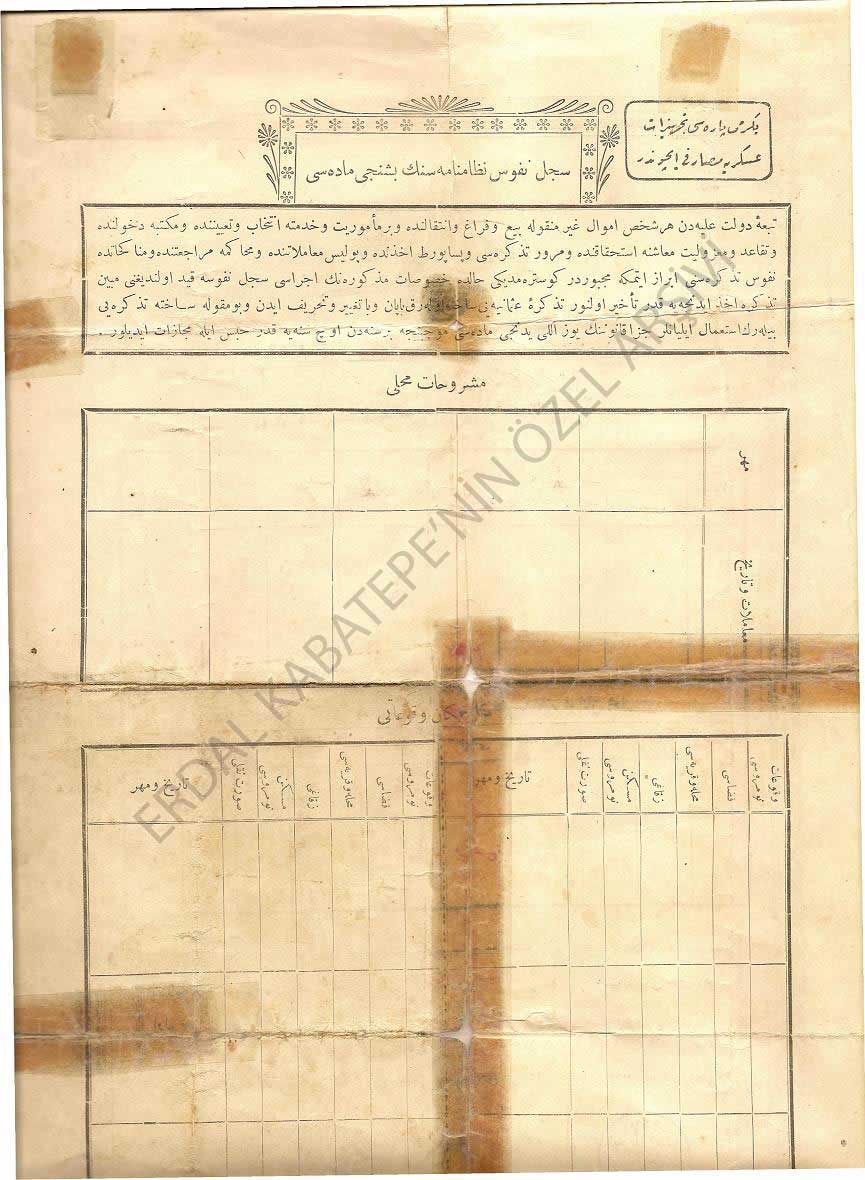 یکرمی پاره‌سی تجهیزات
عسکریه مصارفی ایچوندر
سجل نفوس نظامنامه سنك بشنجی ماده سی
تبعهٔ دولت علیه دن هر شخص اموال غیر منقوله بیع و فراغ وانتقالنده و بر مأموریت و خدمته انتخاب وتعییننده ومکتبه دخولنده
وتقاعد و معزولیت معاشنه استحقاقنده ومرور تذکره سی وپساپورط اخذنده وپولیس معاملاتنده ومحاکمه مراجعتنده ومناکحاتده
نفوس تذکره سی ابراز ایتمکه مجبوردر کوسترمدیکی حالده خصوصات مذکوره نك اجراسی سجل نفوسه قید اولندیغنی مبین
تذکره اخذ ایدنجیه قدر تأخیر اولنور تذکرهٔ عثمانیه یی ساخته اوله رق یاپان ویا تغییر وتحریف ایدن وبو مقوله ساخته تذکره یی
بیله رك استعمال ایلیانلر جزا قانوننك یوز اللی یدنجی ماده سی موجبنجه برسنه دن اوچ سنه یه قدر حبس ایله مجازات ایدیلور .
مشروحات محلی
مهر
معاملات و تاریخ
مکان وقوعاتی
وقوعات نومروسی
قضاسی
محله وقریه سی
زقاغی
مسکن نومروسی
صورت نقلی
تاریخ ومهر
وقوعات نومروسی
قضاسی
محله وقریه سی
زقاغی
مسکن نومروسی
صورت نقلی
تاریخ ومهر
ERDAL KABATEPE'NİN ÖZEL ARŞİVİ